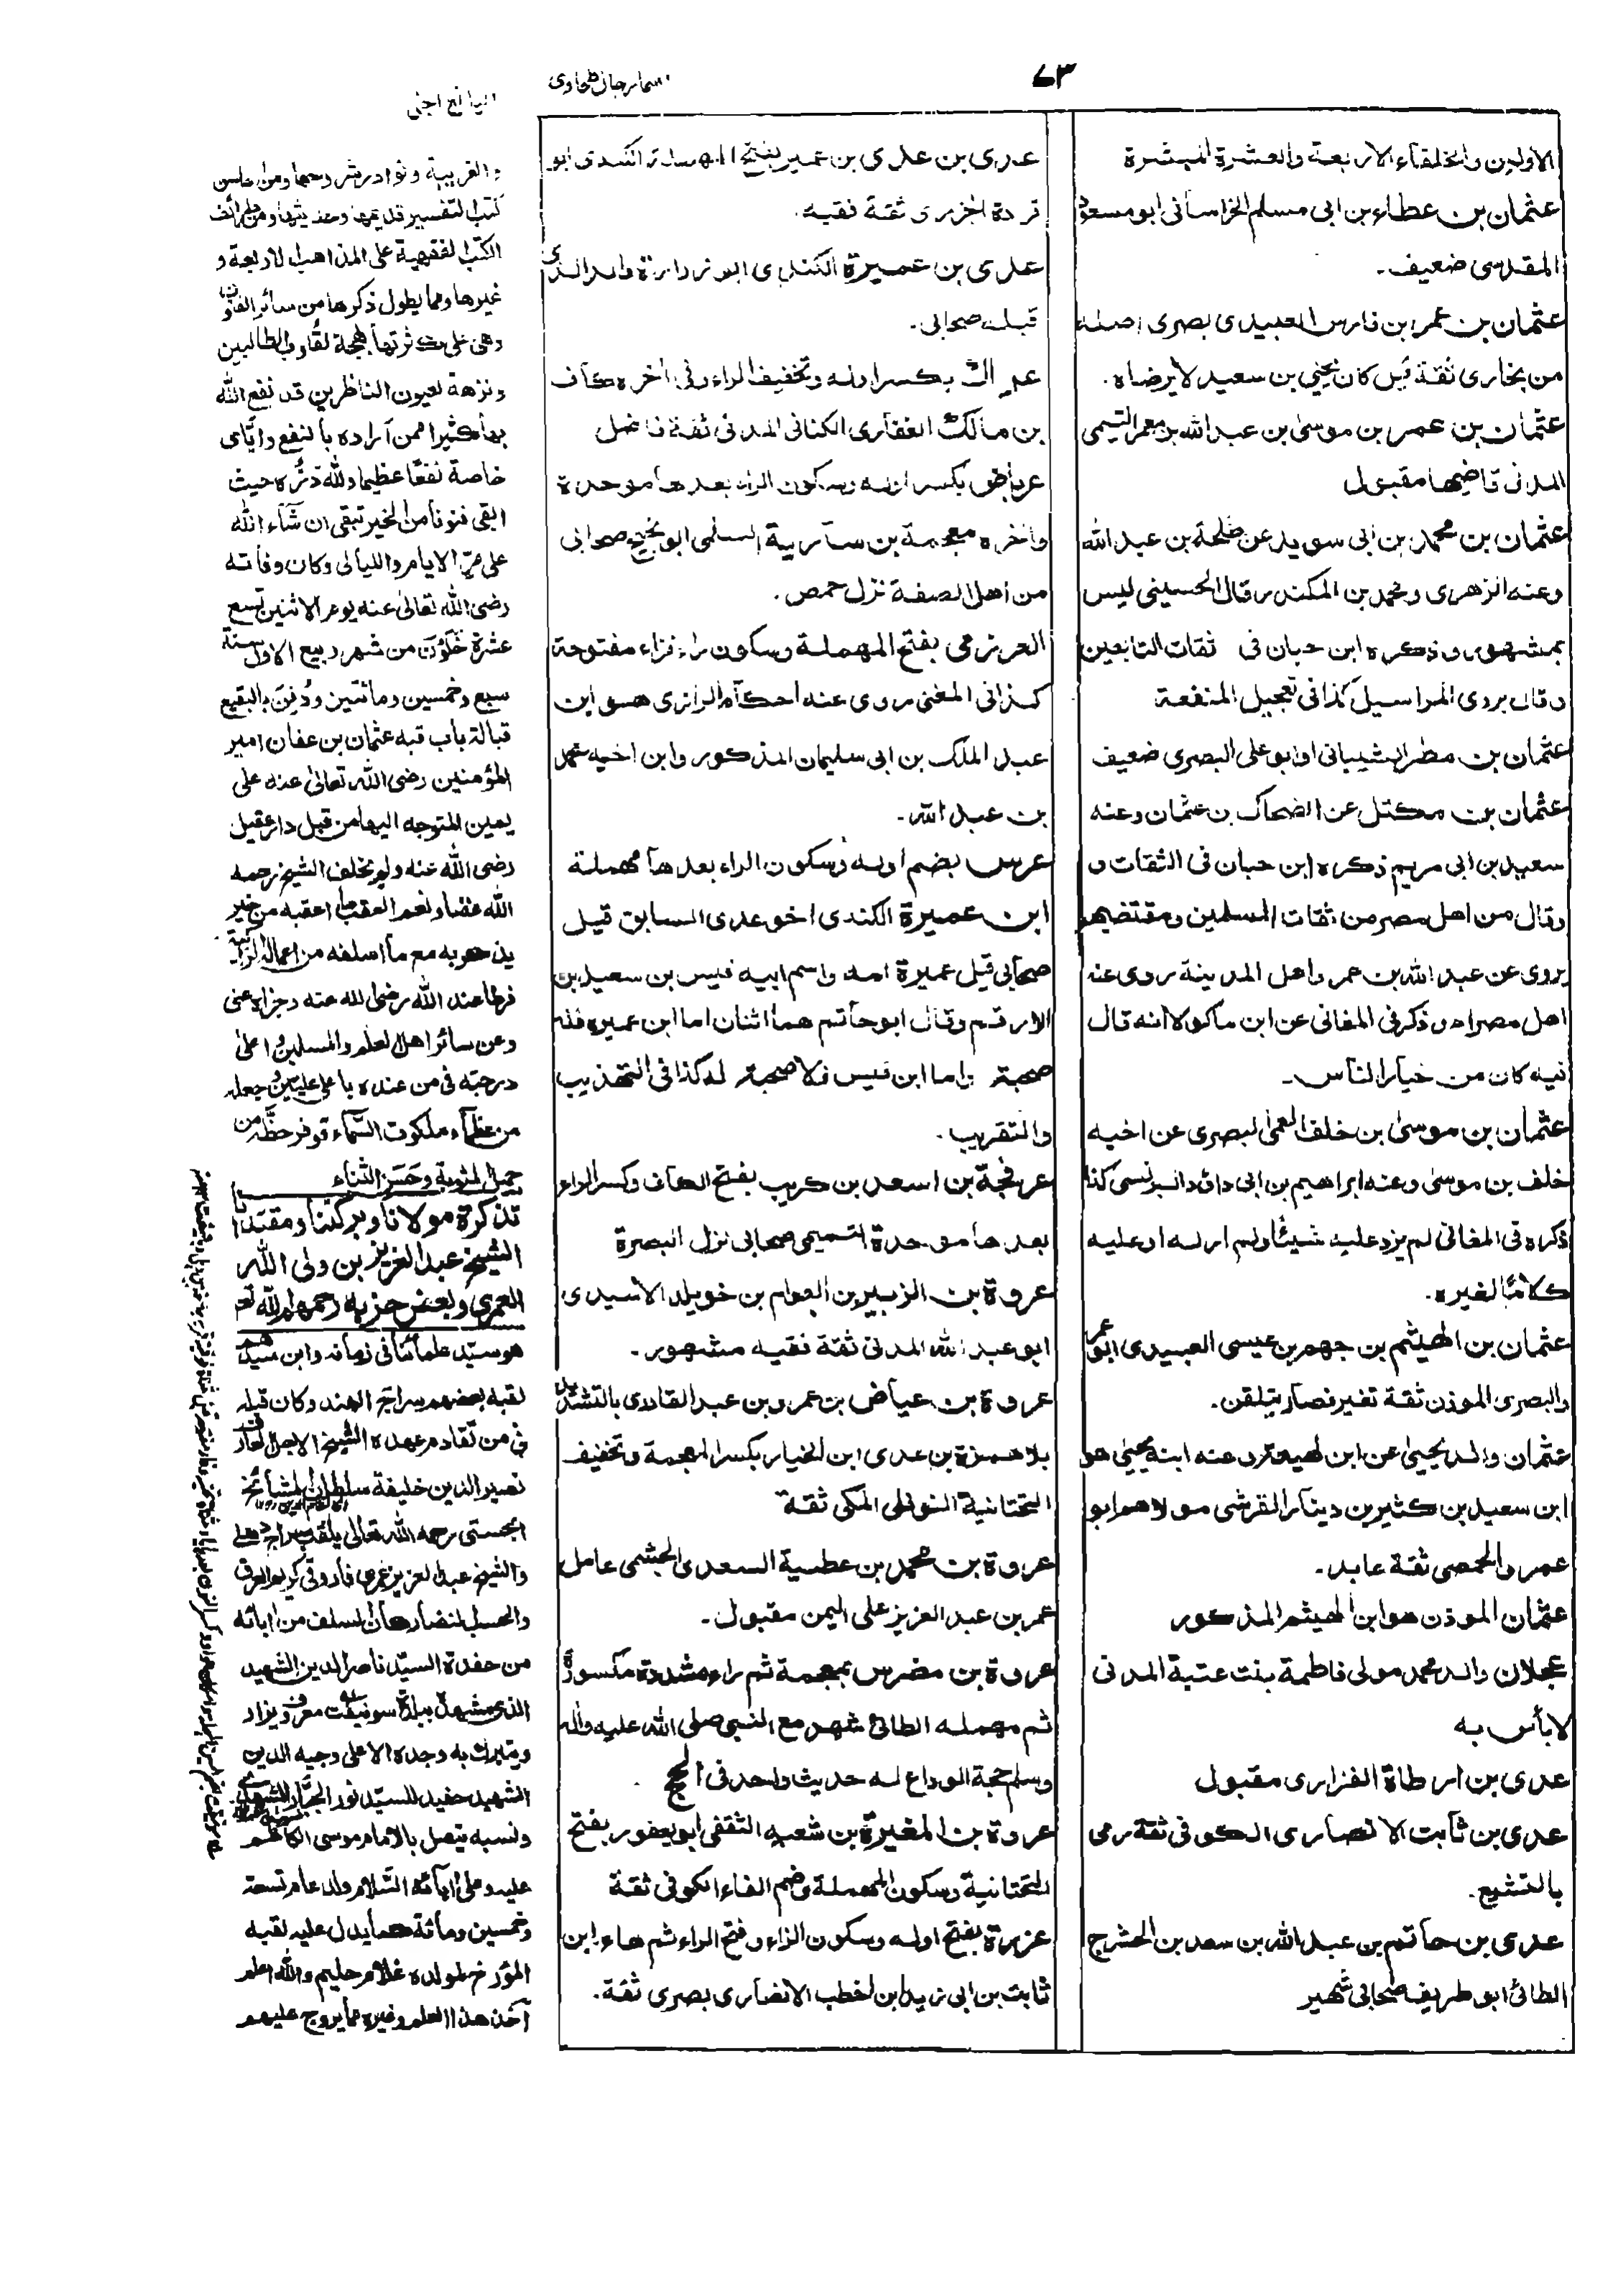 ٦٣
اسماء رجال طحاوی
اليانع الجنی
الاولين والخلفاء الاربعة والعشرة المبشرة
عثمان بن عطاء بن ابی مسلم الخراسانی ابو مسعود
المقدسی ضعيف۔
عثمان بن عمر بن فارس العبيدی بصری اصله
من بخاری ثقة قيل كان يحيی بن سعيد لا يرضاه.
عثمان بن عمر بن موسیٰ بن عبد الله بن معمر التيمی
المدنی قاضيها مقبول
عثمان بن محمد بن ابی سويد عن طلحة بن عبد الله
وعنه الزهری ومحمد بن المكندر قال الحسينی ليس
بمشهور وذكره ابن حبان فی ثقات التابعين
وقال يروی المراسيل كذا فی تعجيل المنفعة
عثمان بن مطر الشيبانی ابو علی البصری ضعيف
عثمان بن مكتل عن الضحاك بن عثمان وعنه
سعيد بن ابی مريم ذكره ابن حبان فی الثقات و
وقال من اهل مصر من ثقات المسلمين ومقتضيهم
يروی عن عبد الله بن عمر واهل المدينة روی عنه
اهل مصر اه وذكر فی المغانی عن ابن ماكولا انه قال
فيه كان من خيار الناس۔
عثمان بن موسیٰ بن خلف العمی البصری عن اخيه
خلف بن موسیٰ وعنه ابراهيم بن ابی داؤد البرلسی كذا
ذكره فی المغانی لم يزد عليه شيئًا ولم ار له او عليه
كلامًا لغيره.
عثمان بن الهيثم بن جهم بن عيسی العبيدی ابو عمر
والبصری الموذن ثقة تغير فصار يتلقن.
عثمان والد يحيیٰ عن ابن لهيعة تردعنه ابنه يحيیٰ هو
ابن سعيد بن كثير بن دينار القرشی مولاهم ابو
عمر والحمصی ثقة عابد۔
عثمان الموذن هو ابن الهيثم المذكور
عجلان والد محمد مولی فاطمة بنت عتبة المدنی
لا بأس به
عدی بن ارطاة الفزاری مقبول
عدی بن ثابت الانصاری الكوفی ثقة رمی
بالتشيع۔
عدی بن حاتم بن عبد الله بن سعد بن الحشرج
الطائی ابو طريف صحابی شهير
عدی بن عدی بن عمير بفتح المهملة الكندی ابو
فردة الجزری ثقة فقيه.
عدی بن عميرة الكندی ابو زرارة والد الذی
قبله صحابی۔
عراك بكسر اوله وتخفيف الراء وفی اخره كاف
بن مالك الغفاری الكنانی المدنی ثقة فاضل
عرباض بكسر اوله وسكون الراء بعدها موحدة
واخره معجمة بن سارية السلمی ابو نجيح صحابی
من اهل الصفة نزل حمص.
العرزمی بفتح المهملة وسكون راء فزاء مفتوحة
كذا فی المغنی روی عنه احكام الرازی هو ابن
عبد الملك بن ابی سليمان المذكور وابن اخيه محمد
بن عبد الله۔
عرس بضم اوله وسكون الراء بعدها مهملة
ابن عميرة الكندی اخو عدی السابق قيل
صحابی قيل عميرة امه واسم ابيه قيس بن سعيد بن
الارقم وقال ابو حاتم هما اثنان اما ابن عميرة فله
صحبة واما ابن قيس فلا صحبة له كذا فی التهذيب
والتقريب۔
عرفجة بن اسعد بن كريب بفتح الكاف وكسر الراء
بعدها موحدة التميمی صحابی نزل البصرة
عروة بن الزبير بن العوام بن خويلد الاسيدی
ابو عبد الله المدنی ثقة فقيه مشهور۔
عروة بن عياض بن عمرو بن عبد القادی بالتشديد
بلا همزة بن عدی ابن الخيار بكسر المعجمة وتخفيف
التحتانية النوفلی المكی ثقة
عروة بن محمد بن عطية السعدی الجشمی عامل
عمر بن عبد العزيز علی اليمن مقبول۔
عروة بن مضرس بمعجمة ثم راء مشددة مكسورة
ثم مهمله الطائی شهد مع النبی صلی الله عليه واله
وسلم حجة الوداع له حديث واحد فی الحج
عروة بن المغيرة بن شعبه الثقفی ابو يعفور بفتح
التحتانية وسكون المهملة وضم الفاء الكوفی ثقة
عزرة بفتح اوله وسكون الزاء وفتح الراء ثم هاء ابن
ثابت بن ابی زيد ابن اخطب الانصاری بصری ثقة.
والغريبة ونوادر شروحها ومن احاسن
كتب التفسير قديمها وحديثها ومن طرائف
الكتب الفقهية علی المذاهب الاربعة و
غيرها ومما يطول ذكرها من سائر الفنون
وهی علی كثرتها بهجة لقلوب الطالبين
ونزهة لعيون الناظرين قد نفع الله
بها كثيرا ممن اراده بالنفع واياى
خاصة نفعًا عظيما ولله درُّه حيث
ابقی فنونا من الخير تبقی ان شاء الله
علی مرّ الايام والليالی وكان وفاته
رضی الله تعالیٰ عنه يوم الاثنين تسع
عشرة خَلَوْنَ من شهر ربيع الاول سنة
سبع وخمسين ومائتين ودُفِنَ بالبقيع
قبالة باب قبه عثمان بن عفان امير
المؤمنين رضی الله تعالیٰ عنه علی
يمين المتوجه اليها من قبل دار عقيل
رضی الله عنه ولم يخلف الشيخ رحمه
الله عقبا ولنعم العقب ما اعقبه من خير
يذكر به مع ما اسلفه من اعماله الزاكية
فرطا عند الله رضی الله عنه وجزاه عنی
وعن سائر اهل العلم والمسلمين واعلیٰ
درجته فی من عنده باعلی عليين وجعله
من عظماء ملكوت السماء توفر حظّه من
جميل المثوبة وحَسَن الثناء
تذكرة مولانا وبركتنا ومقتدانا
الشيخ عبد العزيز بن ولی الله
العمری وبعض حزبه رحمهم الله تعالی
هو سيّد علمائنا فی زمانه وابن سيدهم
لقبه بعضهم سراج الهند وكان قبله
فی من تقادم عهده الشيخ الاجل العارف
نصير الدين خليفة سلطان المشائخ
الجستی رحمه الله تعالیٰ يلقب بسراج دهلی
والشيخ عبد العزيز عمری فاروقی كريم العرق
من حفدة السيّد ناصر الدين الشهيد
الذی مشهده ببلدة سونيفت معروف ويزار
ويتبرك به وجده الاعلی وجيه الدين
الشهيد حفيد للسيّد نور الجبّار المشهدی
ونسبه يتصل بالامام موسی الكاظم
عليه وعلی ابائه السّلام ولد عام تسعة
وخمسين ومائة كما يدل عليه لقبه
المؤرخ لمولده غلام حليم والله اعلم
آخذ هذا العلم وغيره مما يروج عليهم